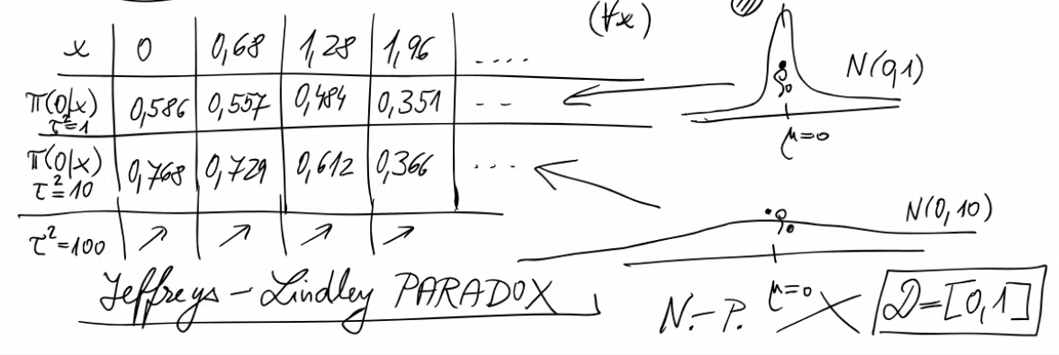 (∀x)
x 0 0,68 1,28 1,96 ....
N(0,1)
π(0|x) 0,586 0,557 0,484 0,351 --
τ²=1
μ=0
π(0|x) 0,768 0,729 0,612 0,366 ...
τ²=10
N(0,10)
τ²=100 ↗ ↗ ↗ ↗
μ=0
Jeffreys - Lindley PARADOX
N.-P. D=[0,1]